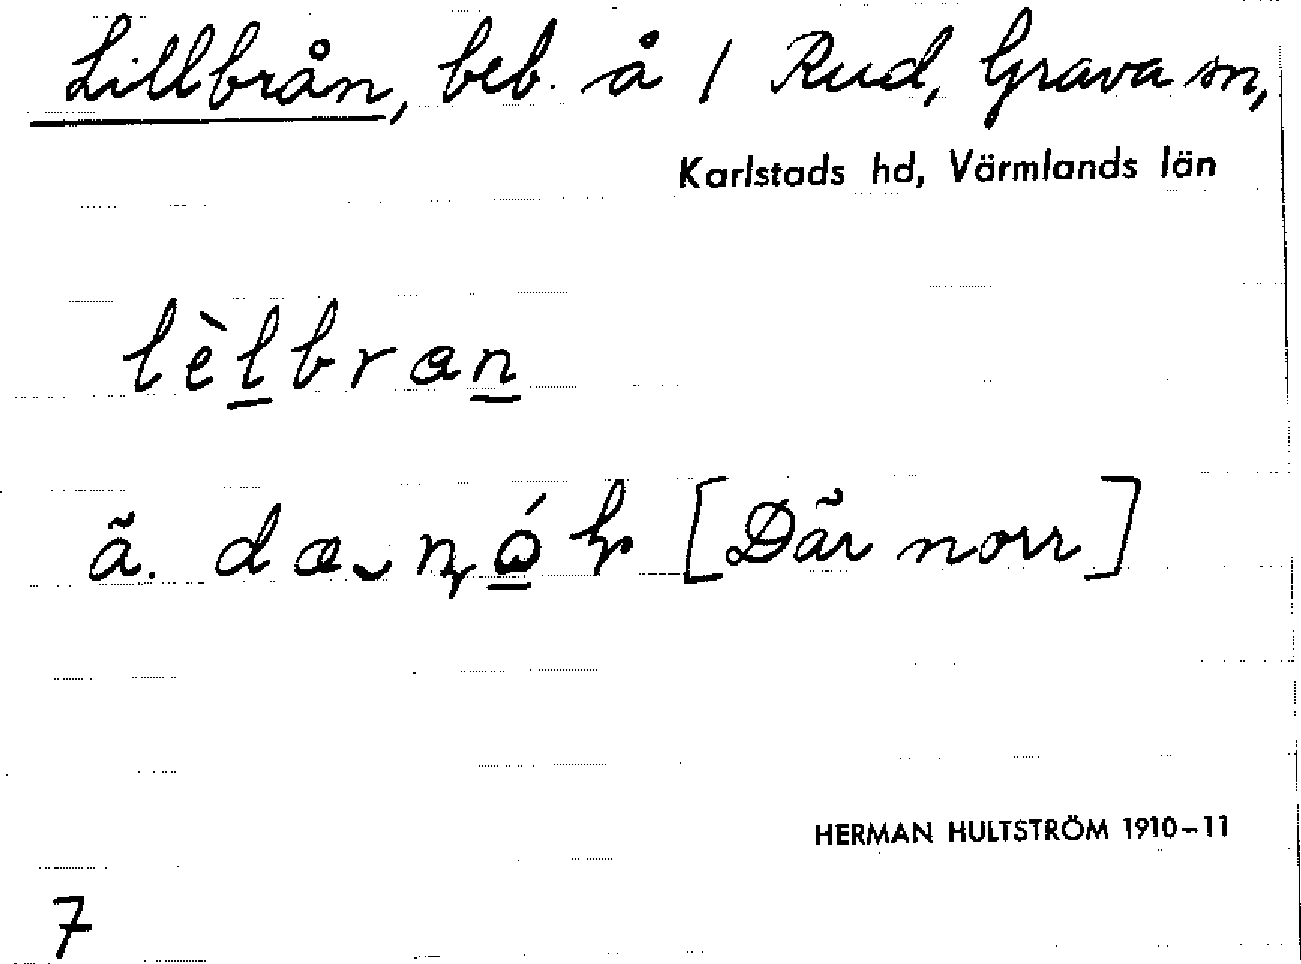 Lillbrån, beb. å 1 Rud, Grava sn,
Karlstads hd, Värmlands län
lèlbran
ã. [Dãr norr]
HERMAN HULTSTRÖM 1910-11
7